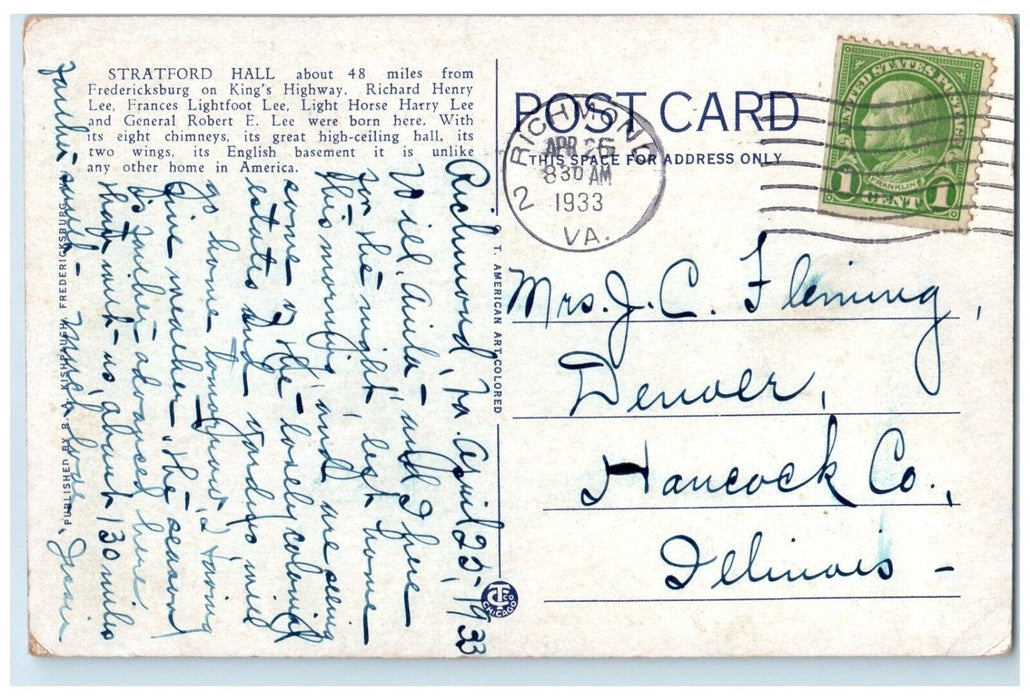 STRATFORD HALL about 48 miles from
Fredericksburg on King's Highway. Richard Henry
Lee, Frances Lightfoot Lee, Light Horse Harry Lee
and General Robert E. Lee were born here. With
its eight chimneys, its great high-ceiling hall, its
two wings, its English basement it is unlike
any other home in America.
POST CARD
THIS SPACE FOR ADDRESS ONLY
RICHMOND
APR 25
830 AM
1933
2 VA.
UNITED STATES POSTAGE
FRANKLIN
1 CENT 1
Mrs. J. C. Fleming,
Denver,
Hancock Co.,
Illinois -
Richmond, Va. April 25, 1933
Will, and I here
for the night, left home
this morning, and are seeing
some of the lovely colonial
estates and gardens will
go home tomorrow, having
fine weather - the season
is farther advanced here
than with us, about 130 miles
farther south - Much love, Jessie
C. T. AMERICAN ART COLORED
PUBLISHED BY R. A. KISHPAUGH, FREDERICKSBURG,
CT CO
CHICAGO